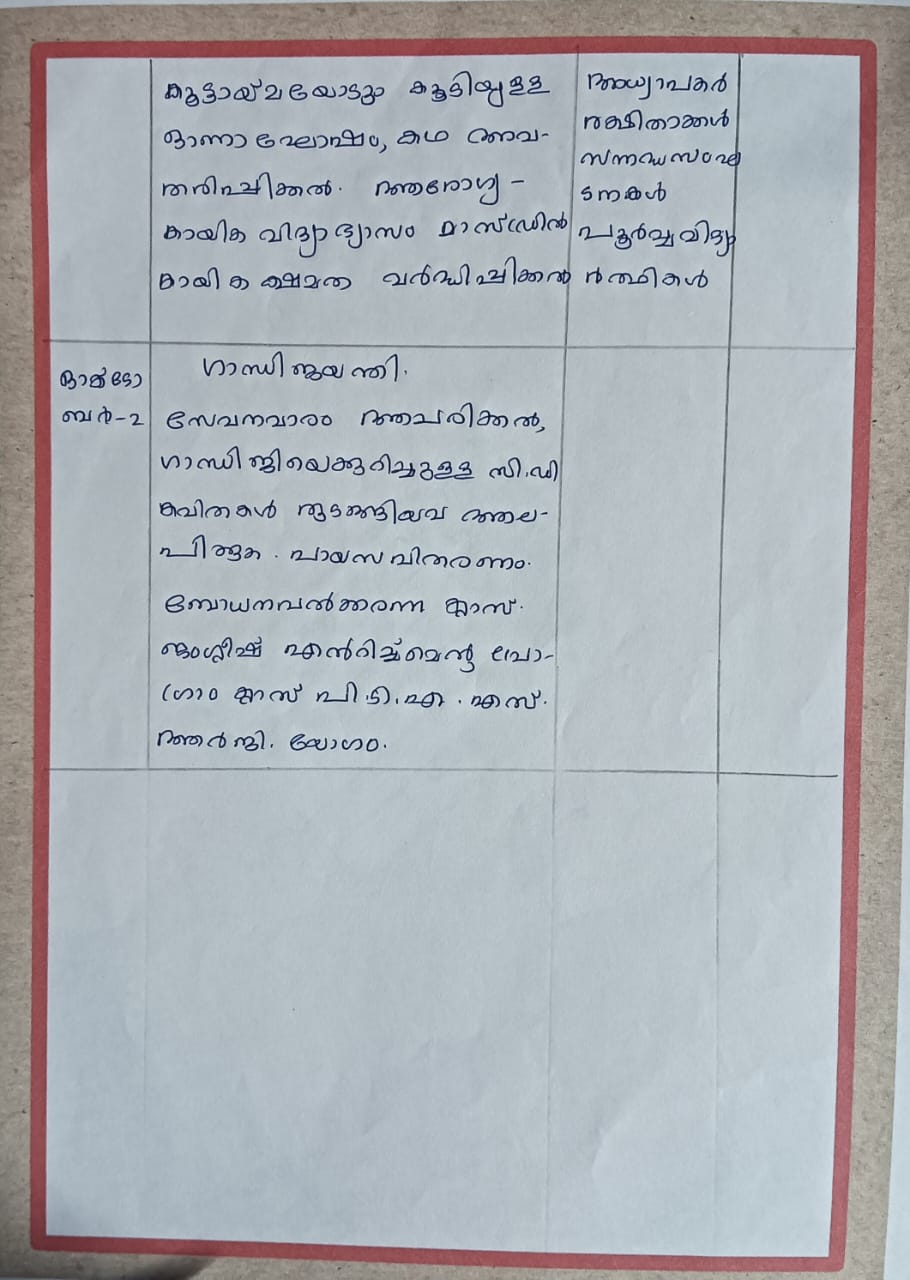 കൂട്ടായ്മയോടും കൂടിയുള്ള
ഓണാഘോഷം, കഥ അവ-
തരിപ്പിക്കൽ. ആരോഗ്യ-
കായിക വിദ്യാഭ്യാസം മാസ്ഡ്രിൽ
കായിക ക്ഷമത വർദ്ധിപ്പിക്കൽ
അധ്യാപകർ
രക്ഷിതാക്കൾ
സന്നദ്ധസംഘ
ടനകൾ
പൂർവ്വവിദ്യാ
ർത്ഥികൾ
ഒക്ടോ
ബർ-2
ഗാന്ധിജയന്തി.
സേവനവാരം ആചരിക്കൽ,
ഗാന്ധിജിയെക്കുറിച്ചുള്ള സി.ഡി
കവിതകൾ തുടങ്ങിയവ ആല-
പിക്കുക. പായസവിതരണം.
ബോധനവൽക്കരണ ക്ലാസ്.
ഇംഗ്ലീഷ് എൻറിച്ച്മെന്റ് പ്രോ-
ഗ്രാം ക്ലാസ് പി.ടി.എ. എസ്.
ആർ.ജി. യോഗം.